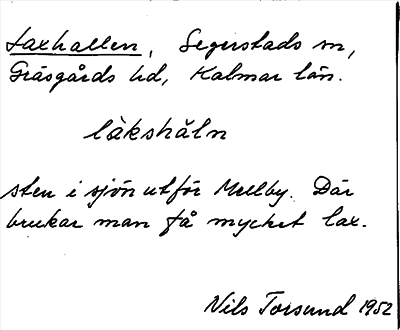 Laxhallen, Segerstads sn,
Gräsgårds hd, Kalmar län.
làkshåln
sten i sjön utför Mellby. Där
brukar man få mycket lax.
Nils Torsund 1952